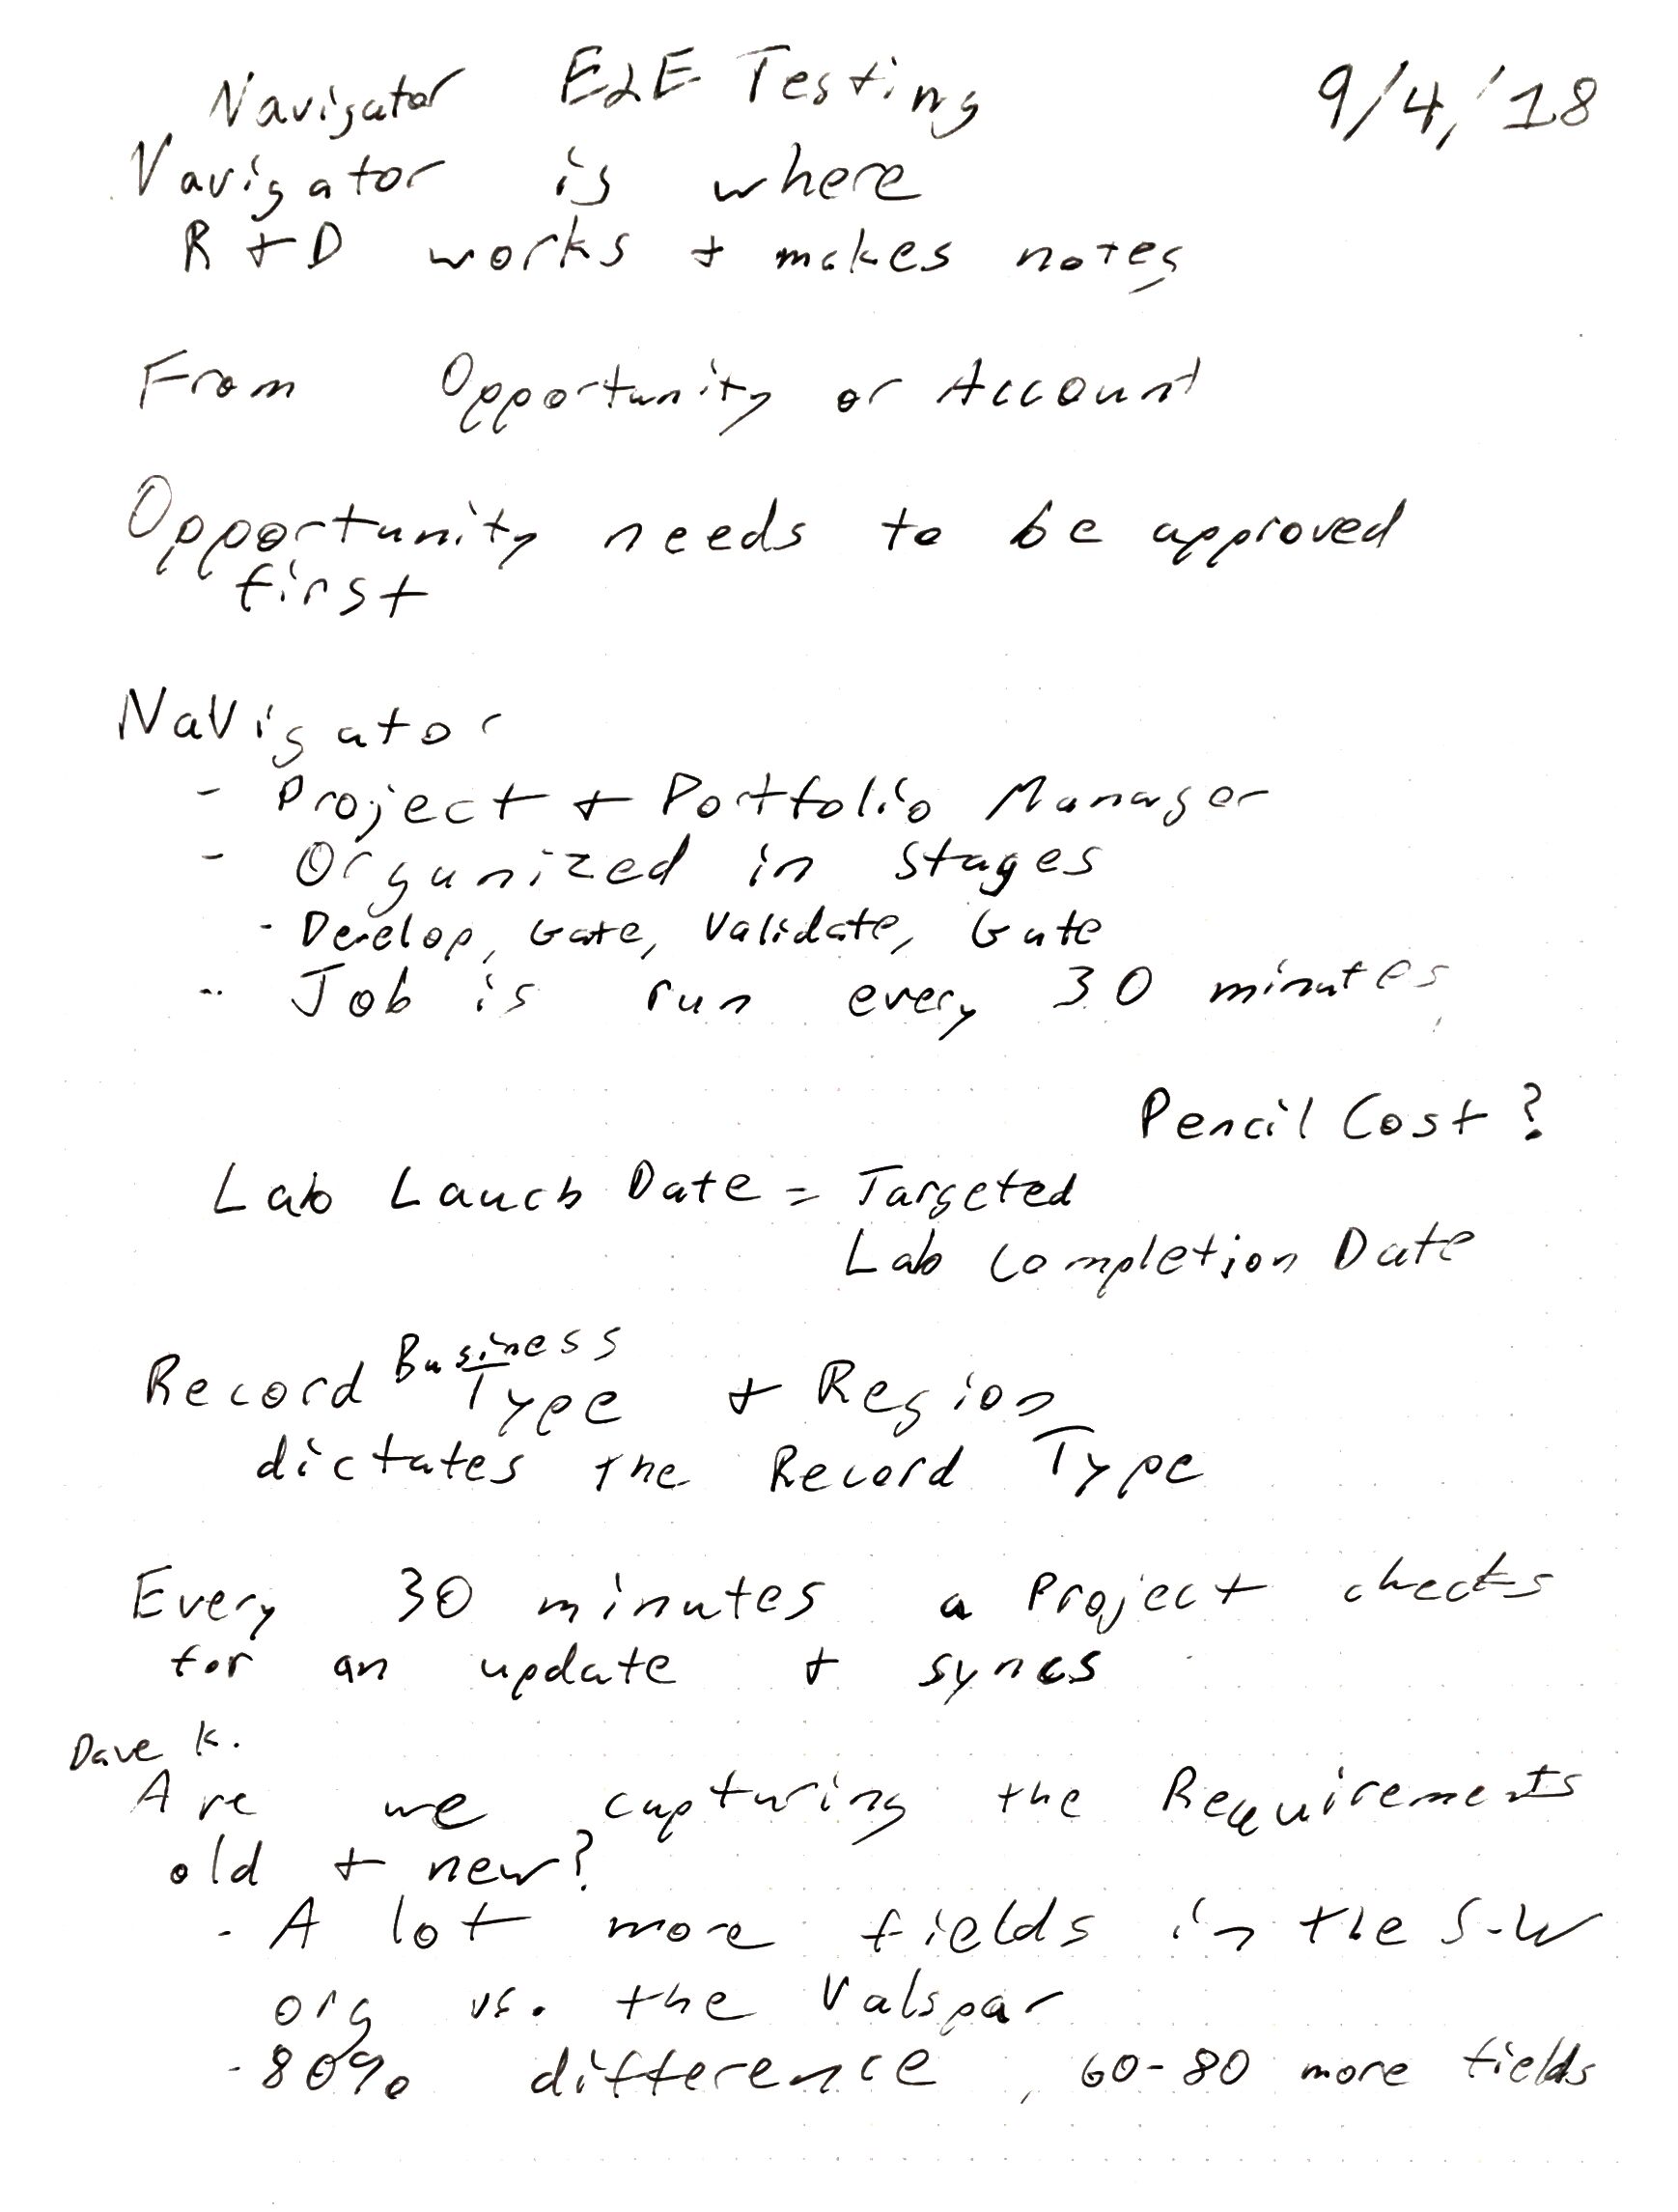 Navigator E2E Testing 9/4/'18
Navigator is where
R + D works + makes notes
From Opportunity or Account
Opportunity needs to be approved
first
Navigator
- Project + Portfolio Manager
- Organized in stages
- Develop, Gate, Validate, Gate
- Job is run every 30 minutes
Pencil Cost?
Lab Lauch Date = Targeted
Lab Completion Date
Business
Record Type + Region
dictates the Record Type
Every 30 minutes a Project checks
for an update + syncs
Dave K.
Are we capturing the Requirements
old + new?
- A lot more fields in the S-W
org vs. the Valspar
- 80% difference, 60-80 more fields